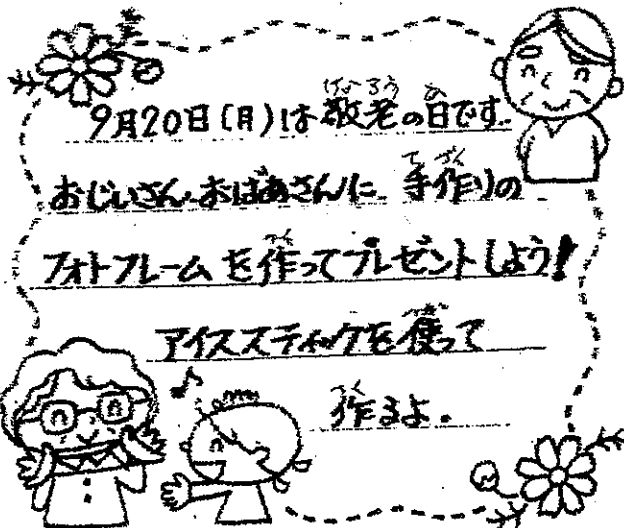 9月20日(月)は敬老の日です。
おじいさん、おばあさんに 手作りの
フォトフレームを作ってプレゼントしよう!
アイススティックを使って
作るよ。